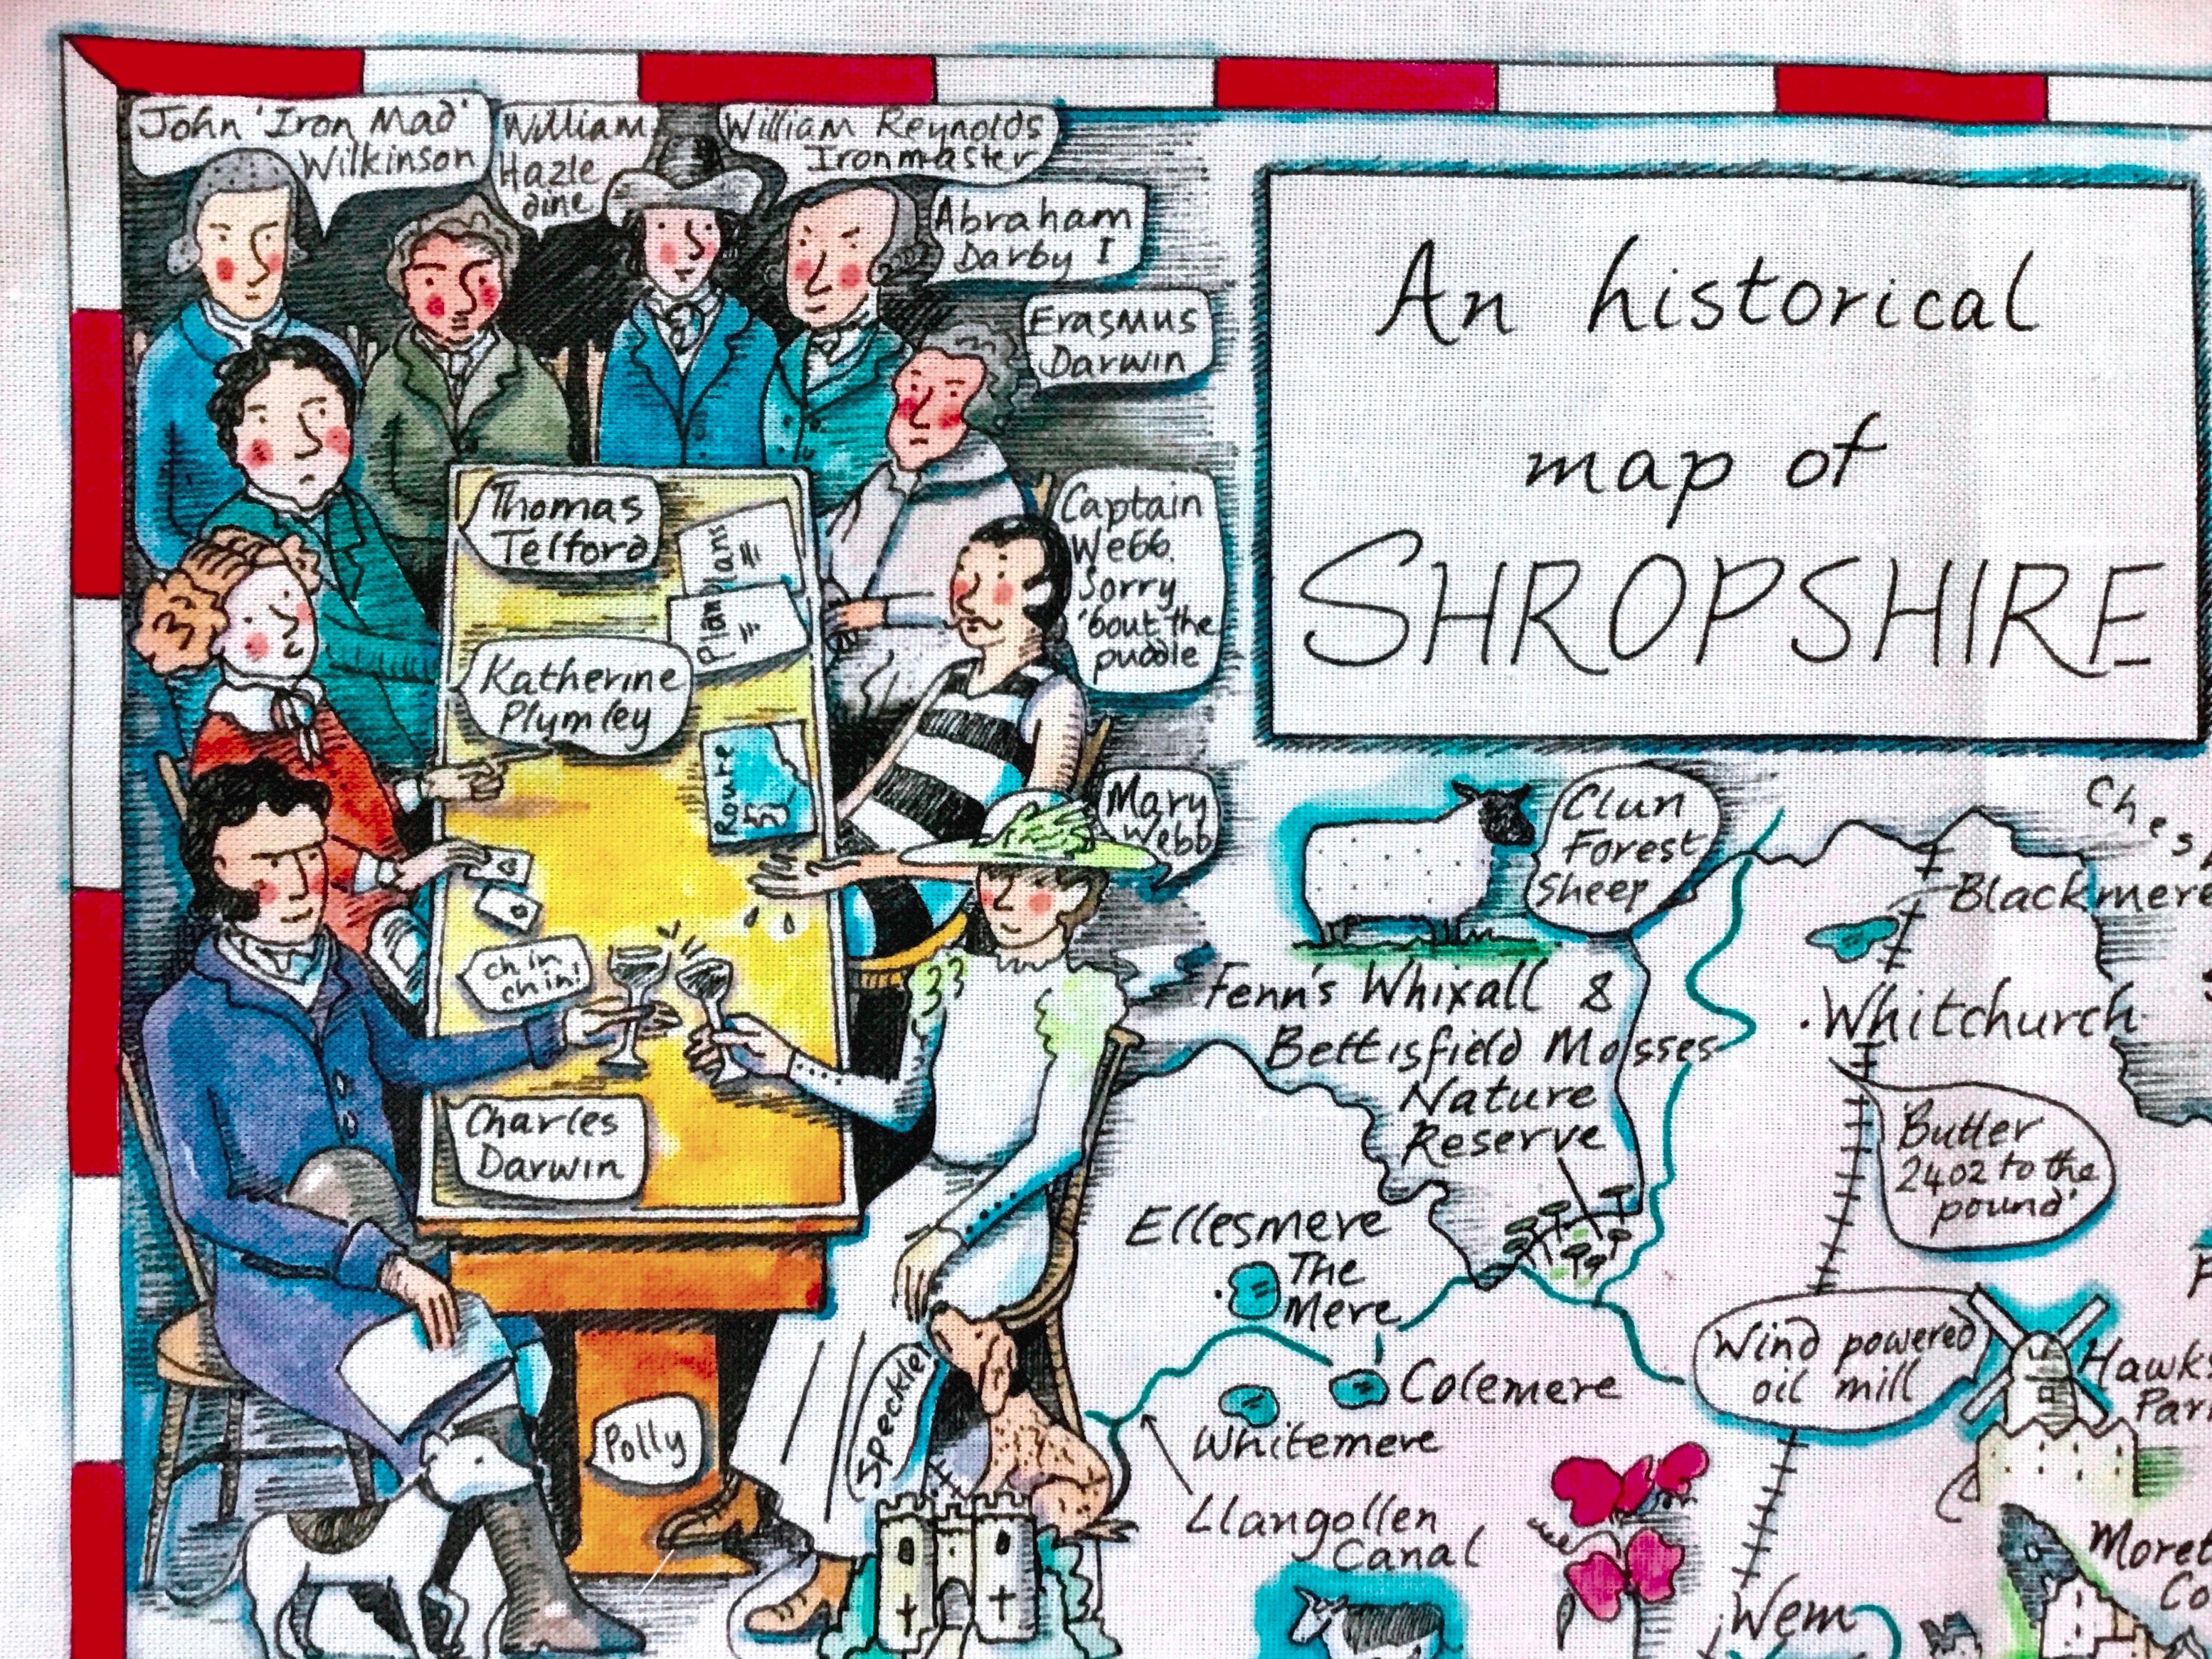 John 'Iron Mad'
Wilkinson
William
Hazle
dine
William Reynolds
Ironmaster
Abraham
Darby I
Erasmus
Darwin
Captain
Webb.
Sorry
'bout the
puddle
Thomas
Telford
Plans
Plan
Katherine
Plymley
Route
Mary
Webb
chin
chin!
Charles
Darwin
Polly
Speckle
An historical
map of
SHROPSHIRE
Clun
Forest
Sheep
Ches
Blackmere
Fenn's Whixall &
Bettisfield Mosses
Nature
Reserve
Whitchurch
'Butter
2402 to the
pound'
Ellesmere
The
Mere
Wind powered
oil mill
Hawk
Par
Colemere
Whitemere
Llangollen
Canal
Moret
Co
Wem